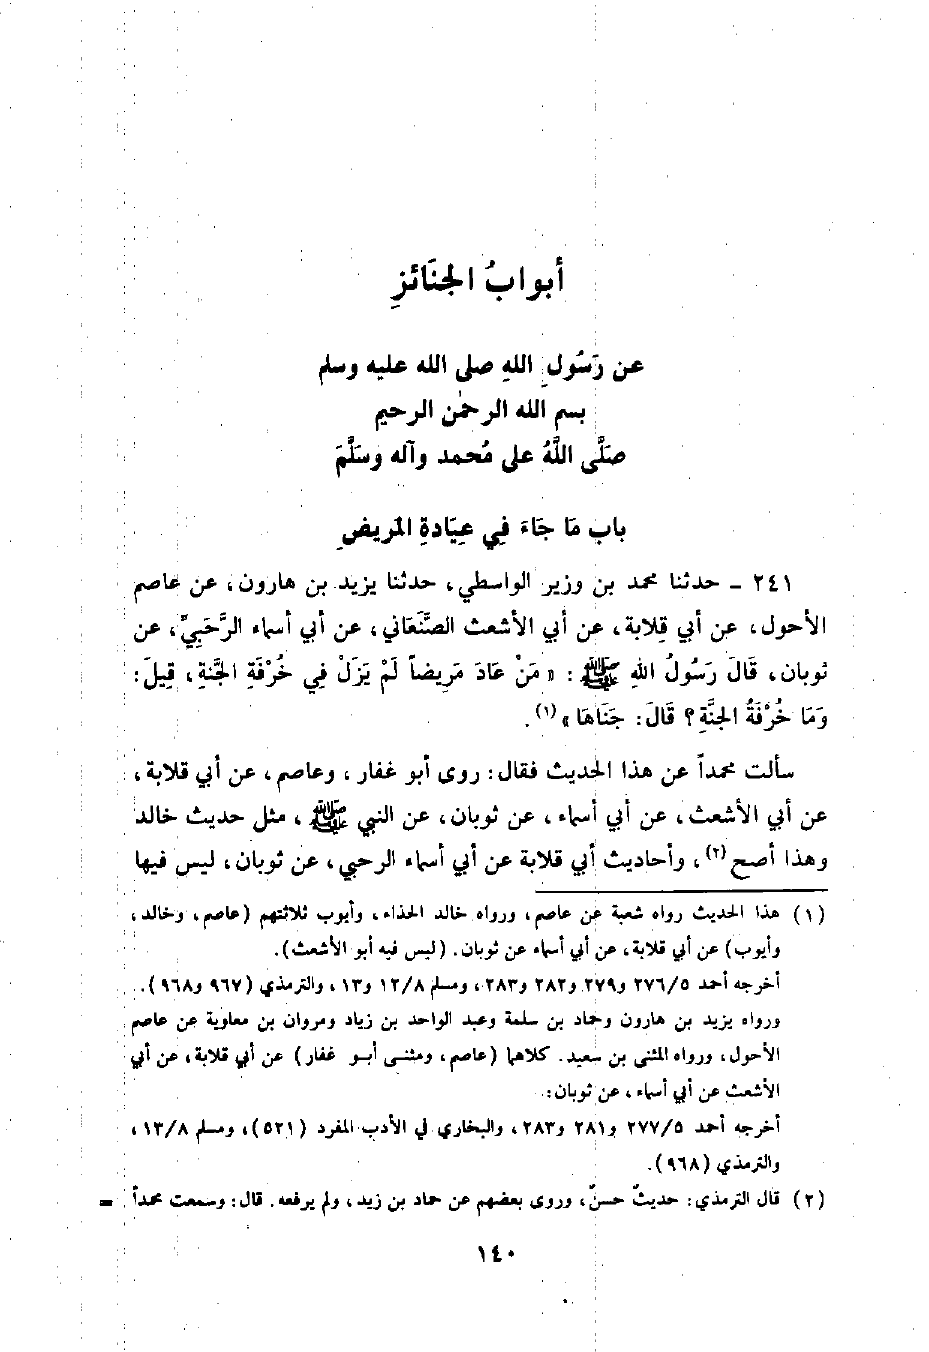 أبوابُ الجنَائزِ
عن رَسُولِ اللهِ صلى الله عليه وسلم
بسم الله الرحمٰن الرحيم
صَلَّى اللَّهُ على مُحمد وآله وسَلَّمَ
باب مَا جَاءَ فِي عِيَادةِ المَريضِ
٢٤١ ـ حدثنا محمد بن وزير الواسطي، حدثنا يزيد بن هارون، عن عاصم
الأحول، عن أبي قِلابة، عن أبي الأشعث الصَّنْعَاني، عن أبي أسماء الرَّحَبِيِّ، عن
ثوبان، قَالَ رَسُولُ اللهِ ﷺ: « مَنْ عَادَ مَرِيضاً لَمْ يَزَلْ فِي خُرْفَةِ الجَنةِ، قِيلَ:
وَمَا خُرْفَةُ الجنَّةِ؟ قَالَ: جَنَاهَا »(١).
سألت محمداً عن هذا الحديث فقال: روى أبو غفار، وعاصم، عن أبي قلابة،
عن أبي الأشعث، عن أبي أسماء، عن ثوبان، عن النبي ﷺ، مثل حديث خالد
وهذا أصح(٢)، وأحاديث أبي قلابة عن أبي أسماء الرحبي، عن ثوبان، ليس فيها
(١) هذا الحديث رواه شعبة عن عاصم، ورواه خالد الحذاء، وأيوب ثلاثتهم (عاصم، وخالد،
وأيوب) عن أبي قلابة، عن أبي أسماء عن ثوبان. (ليس فيه أبو الأشعث).
أخرجه أحمد ٢٧٦/٥ و٢٧٩ و٢٨٢ و٢٨٣، ومسلم ١٢/٨ و١٣، والترمذي (٩٦٧ و٩٦٨).
ورواه يزيد بن هارون وحماد بن سلمة وعبد الواحد بن زياد ومروان بن معاوية عن عاصم
الأحول، ورواه المثنى بن سعيد. كلاهما (عاصم، ومثنى أبو غفار) عن أبي قلابة، عن أبي
الأشعث عن أبي أسماء، عن ثوبان:
أخرجه أحمد ٢٧٧/٥ و٢٨١ و٢٨٣، والبخاري في الأدب المفرد (٥٢١)، ومسلم ١٣/٨،
والترمذي (٩٦٨).
(٢) قال الترمذي: حديثٌ حسنٌ، وروى بعضهم عن حماد بن زيد، ولم يرفعه. قال: وسمعت محمداً =
١٤٠